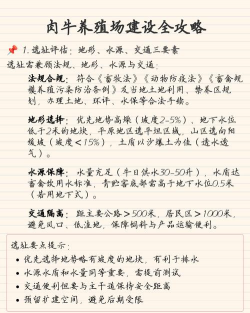 肉牛养殖场建设全攻略
📌 1.选址评估：地形、水源、交通三要素
选址需兼顾法规、地形、水源与交通：
法规合规：符合《畜牧法》《动物防疫法》《畜禽规
模养殖污染防治条例》及当地土地利用、禁养区规
划，办理土地、环评、水保等合法手续。
地形选择：优先地势高燥（坡度2-5%）、地下水位
低于2米的地块，平原地区选平坦区域，山区选向阳
缓坡（坡度<15%），土质以沙壤土为佳（透水透
气）。
水源保障：水量充足（牛日饮水30-50升），水质达
畜禽饮用水标准，青贮窖底部需高于地下水位0.5米
（若用地下式）。
交通隔离：距主要公路>500米、居民区>1000米，
避免风口、低洼地，保障饲料与产品运输便利。
选址要点提示：
• 优先选择地势略有坡度的地块，有利于排水
• 水源水质和水量同等重要，需提前测试
• 交通便利但要与主干道保持安全距离
• 预留扩建空间，避免后期受限